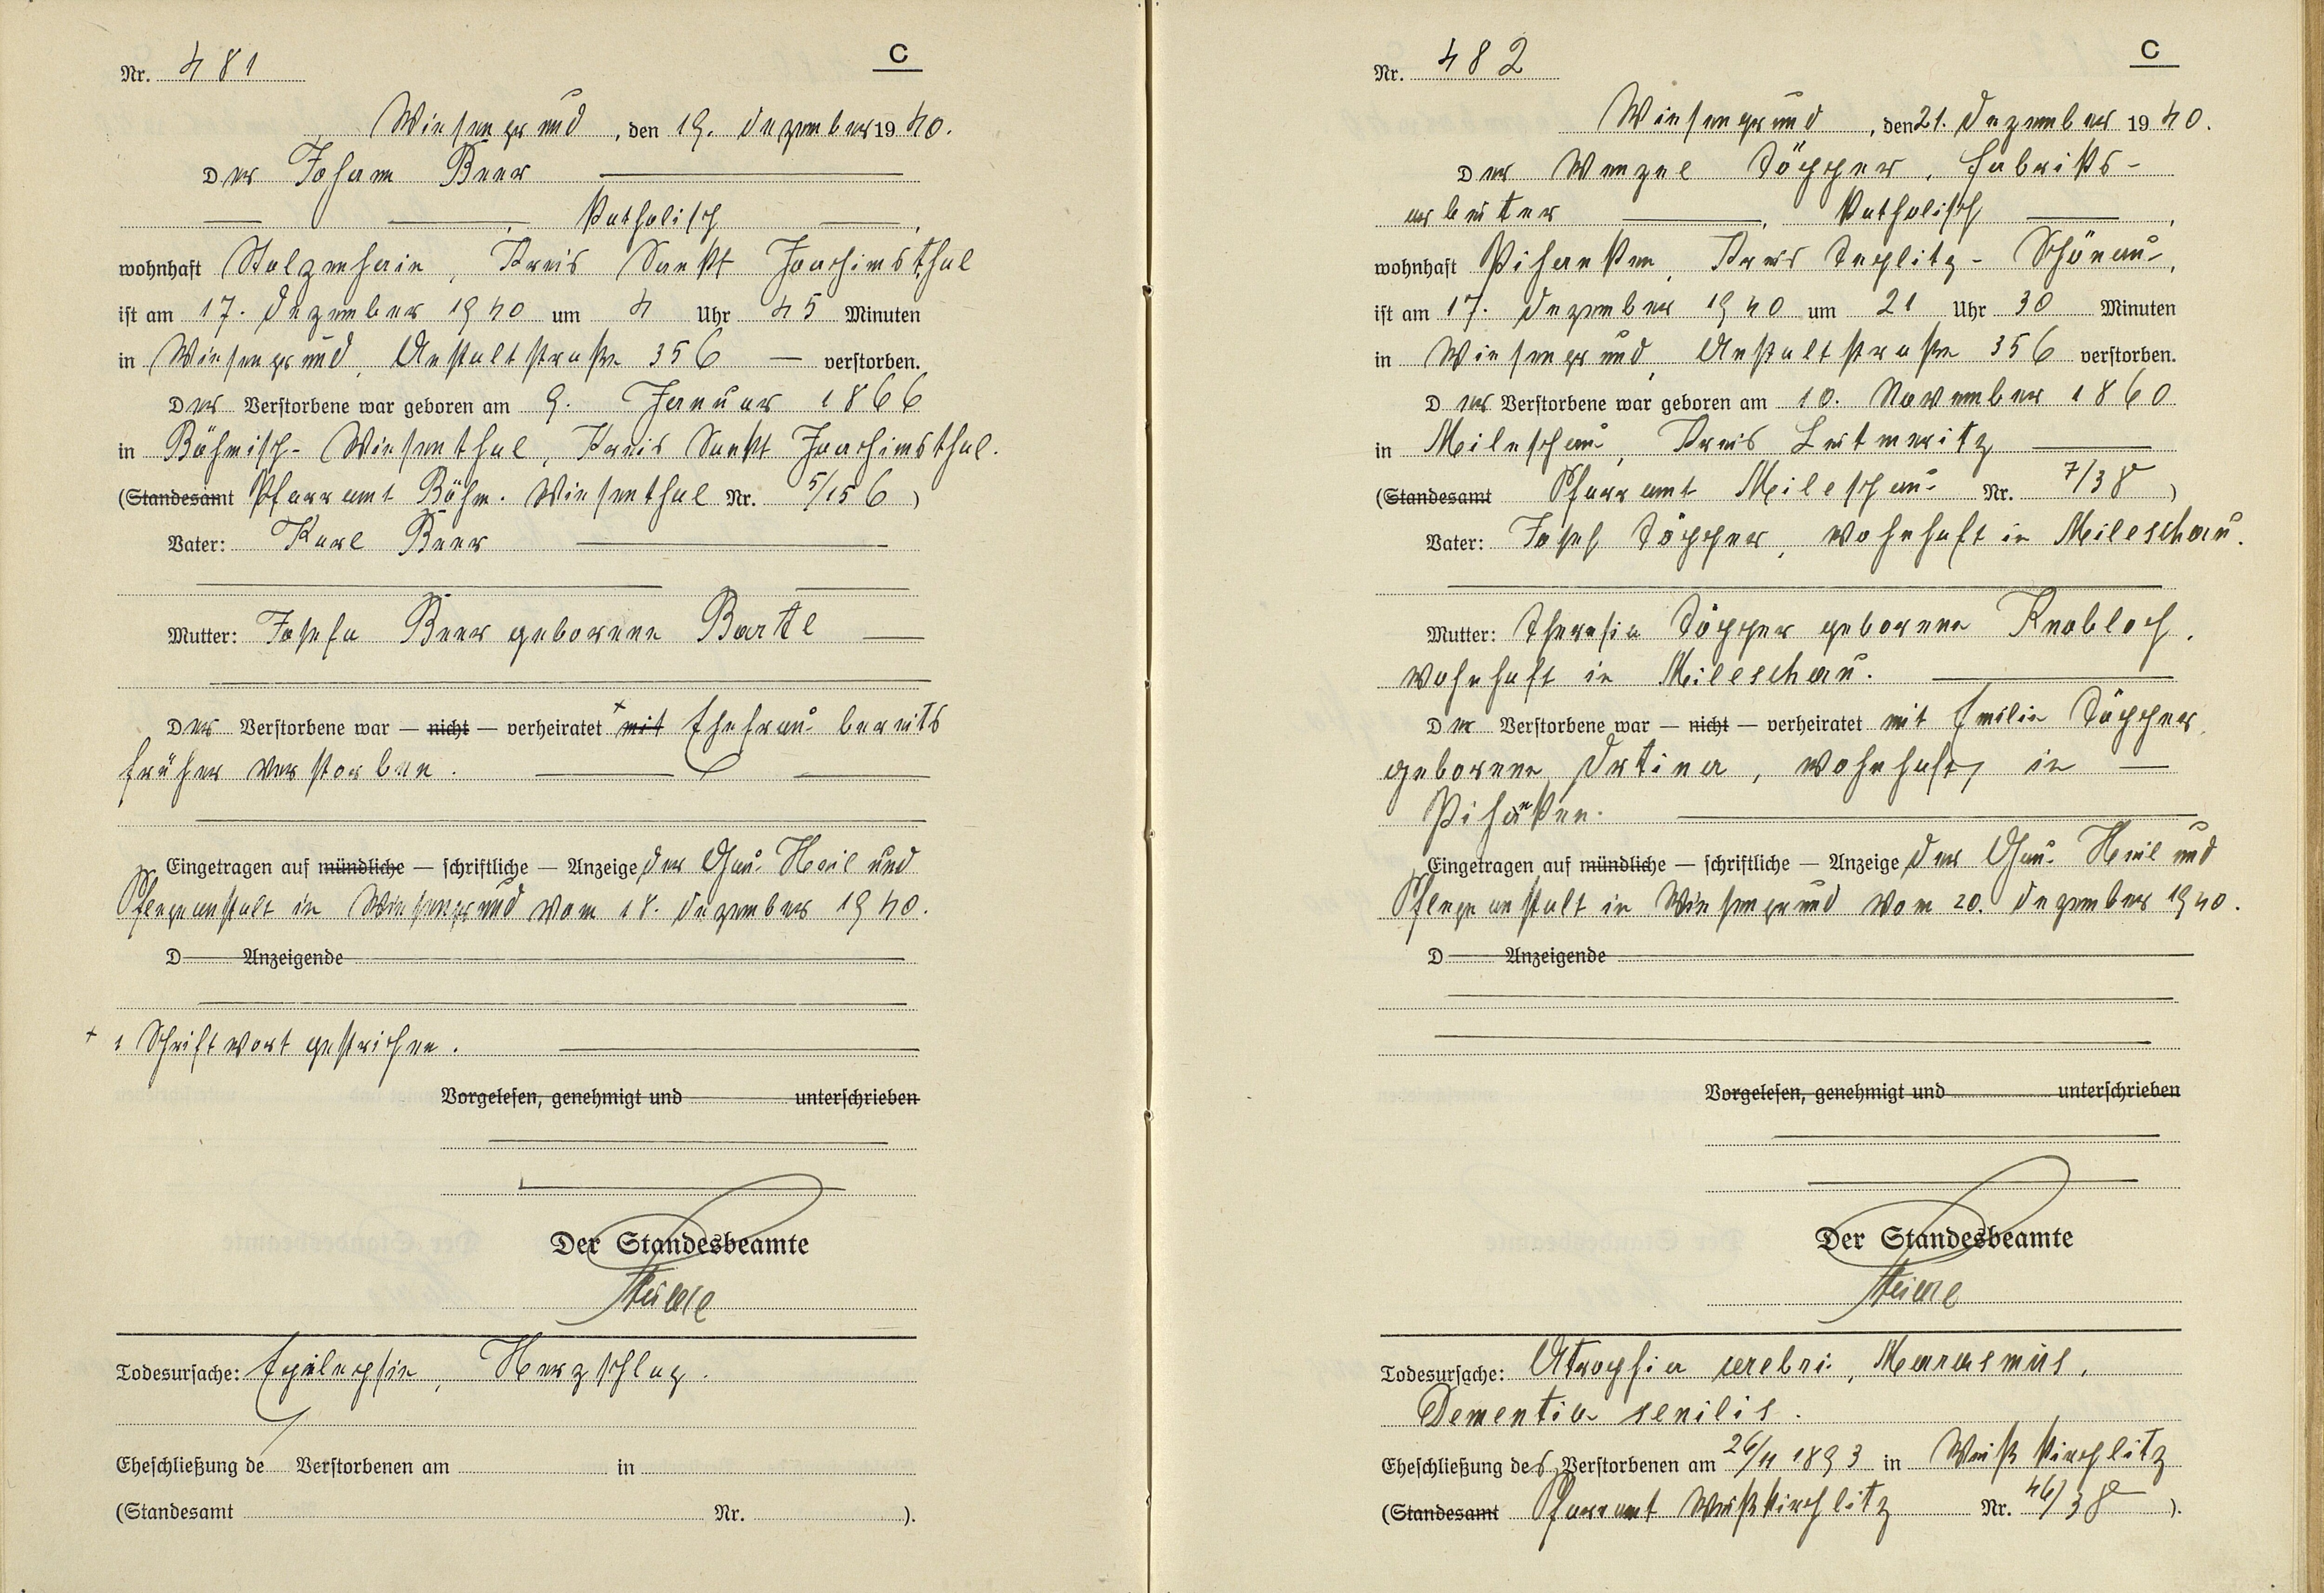 Nr. 481
C
Wiesengrund, den 19. Dezember 1940.
Der Johann Beer
katholisch,
wohnhaft Stolzenhain, Kreis Sankt Joachimsthal
ist am 17. Dezember 1940 um 4 Uhr 45 Minuten
in Wiesengrund, Anstaltstraße 356 — verstorben.
Der Verstorbene war geboren am 9. Januar 1866
in Böhmisch-Wiesenthal, Kreis Sankt Joachimsthal.
(Standesamt Pfarramt Böhm. Wiesenthal Nr. 5/156)
Vater: Karl Beer
Mutter: Josefa Beer geborene Bartl
Der Verstorbene war — nicht — verheiratet + mit Ehefrau bereits
früher verstorben.
Eingetragen auf mündliche — schriftliche — Anzeige der Gau-Heil und
Pflegeanstalt in Wiesengrund vom 18. Dezember 1940.
D Anzeigende
+ 1 Schriftwort gestrichen.
Vorgelesen, genehmigt und unterschrieben
Der Standesbeamte
Todesursache: Epilepsie, Herzschlag.
Eheschließung de Verstorbenen am in
(Standesamt Nr. ).
Nr. 482
C
Wiesengrund, den 21. Dezember 1940.
Der Wenzel Töpper, Fabriks-
arbeiter, katholisch,
wohnhaft Pihanken, Kreis Teplitz-Schönau,
ist am 17. Dezember 1940 um 21 Uhr 30 Minuten
in Wiesengrund, Anstaltstraße 356 verstorben.
Der Verstorbene war geboren am 10. November 1860
in Mileschau, Kreis Leitmeritz
(Standesamt Pfarramt Mileschau Nr. 7/38)
Vater: Josef Töpper, wohnhaft in Mileschau.
Mutter: Theresia Töpper geborene Knobloch,
wohnhaft in Mileschau.
Der Verstorbene war — nicht — verheiratet mit Emilie Töpper,
geborene Drtina, wohnhaft in —
Pihanken.
Eingetragen auf mündliche — schriftliche — Anzeige der Gau-Heil und
Pflegeanstalt in Wiesengrund vom 20. Dezember 1940.
D Anzeigende
Vorgelesen, genehmigt und unterschrieben
Der Standesbeamte
Todesursache: Atrophia cerebri, Marasmus,
Dementia senilis.
Eheschließung des Verstorbenen am 26/11 1893 in Weißkirchlitz
(Standesamt Pfarramt Weißkirchlitz Nr. 46/38).